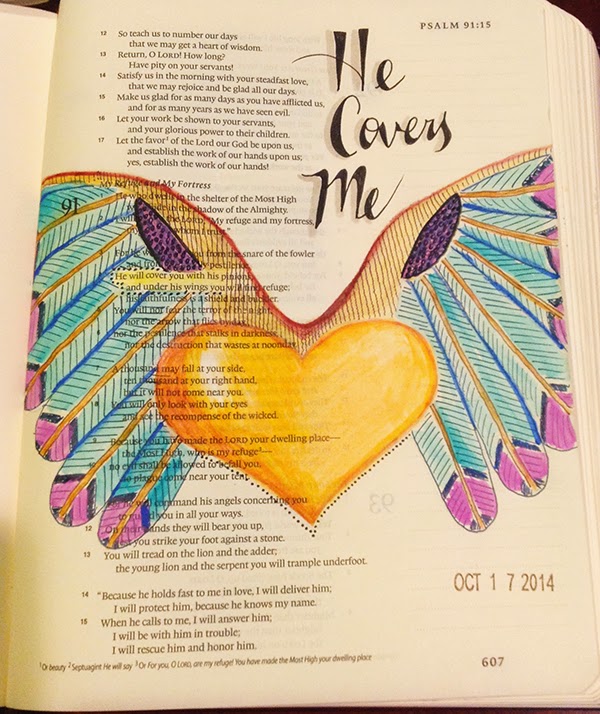 PSALM 91:15
He
Covers
Me
12 So teach us to number our days
that we may get a heart of wisdom.
13 Return, O LORD! How long?
Have pity on your servants!
14 Satisfy us in the morning with your steadfast love,
that we may rejoice and be glad all our days.
15 Make us glad for as many days as you have afflicted us,
and for as many years as we have seen evil.
16 Let your work be shown to your servants,
and your glorious power to their children.
17 Let the favor¹ of the Lord our God be upon us,
and establish the work of our hands upon us;
yes, establish the work of our hands!
My Refuge and My Fortress
91 He who dwells in the shelter of the Most High
in the shadow of the Almighty.
the LORD, "My refuge and my fortress,
whom I trust."
For he you from the snare of the fowler
and from pestilence.
He will cover you with his pinions,
and under his wings you will find refuge;
his faithfulness is a shield and buckler.
You will not fear the terror of the night,
nor the arrow that flies by day,
nor the pestilence that stalks in darkness,
nor the destruction that wastes at noonday.
7 A thousand may fall at your side,
ten thousand at your right hand,
but it will not come near you.
8 You will only look with your eyes
and see the recompense of the wicked.
9 Because you have made the LORD your dwelling place—
the Most High, who is my refuge³—
10 no evil shall be allowed to befall you,
no plague come near your tent.
will command his angels concerning you
you in all your ways.
12 On their hands they will bear you up,
you strike your foot against a stone.
13 You will tread on the lion and the adder;
the young lion and the serpent you will trample underfoot.
14 "Because he holds fast to me in love, I will deliver him;
I will protect him, because he knows my name.
15 When he calls to me, I will answer him;
I will be with him in trouble;
I will rescue him and honor him.
OCT 17 2014
¹ Or beauty ² Septuagint He will say ³ Or For you, O LORD, are my refuge! You have made the Most High your dwelling place
607